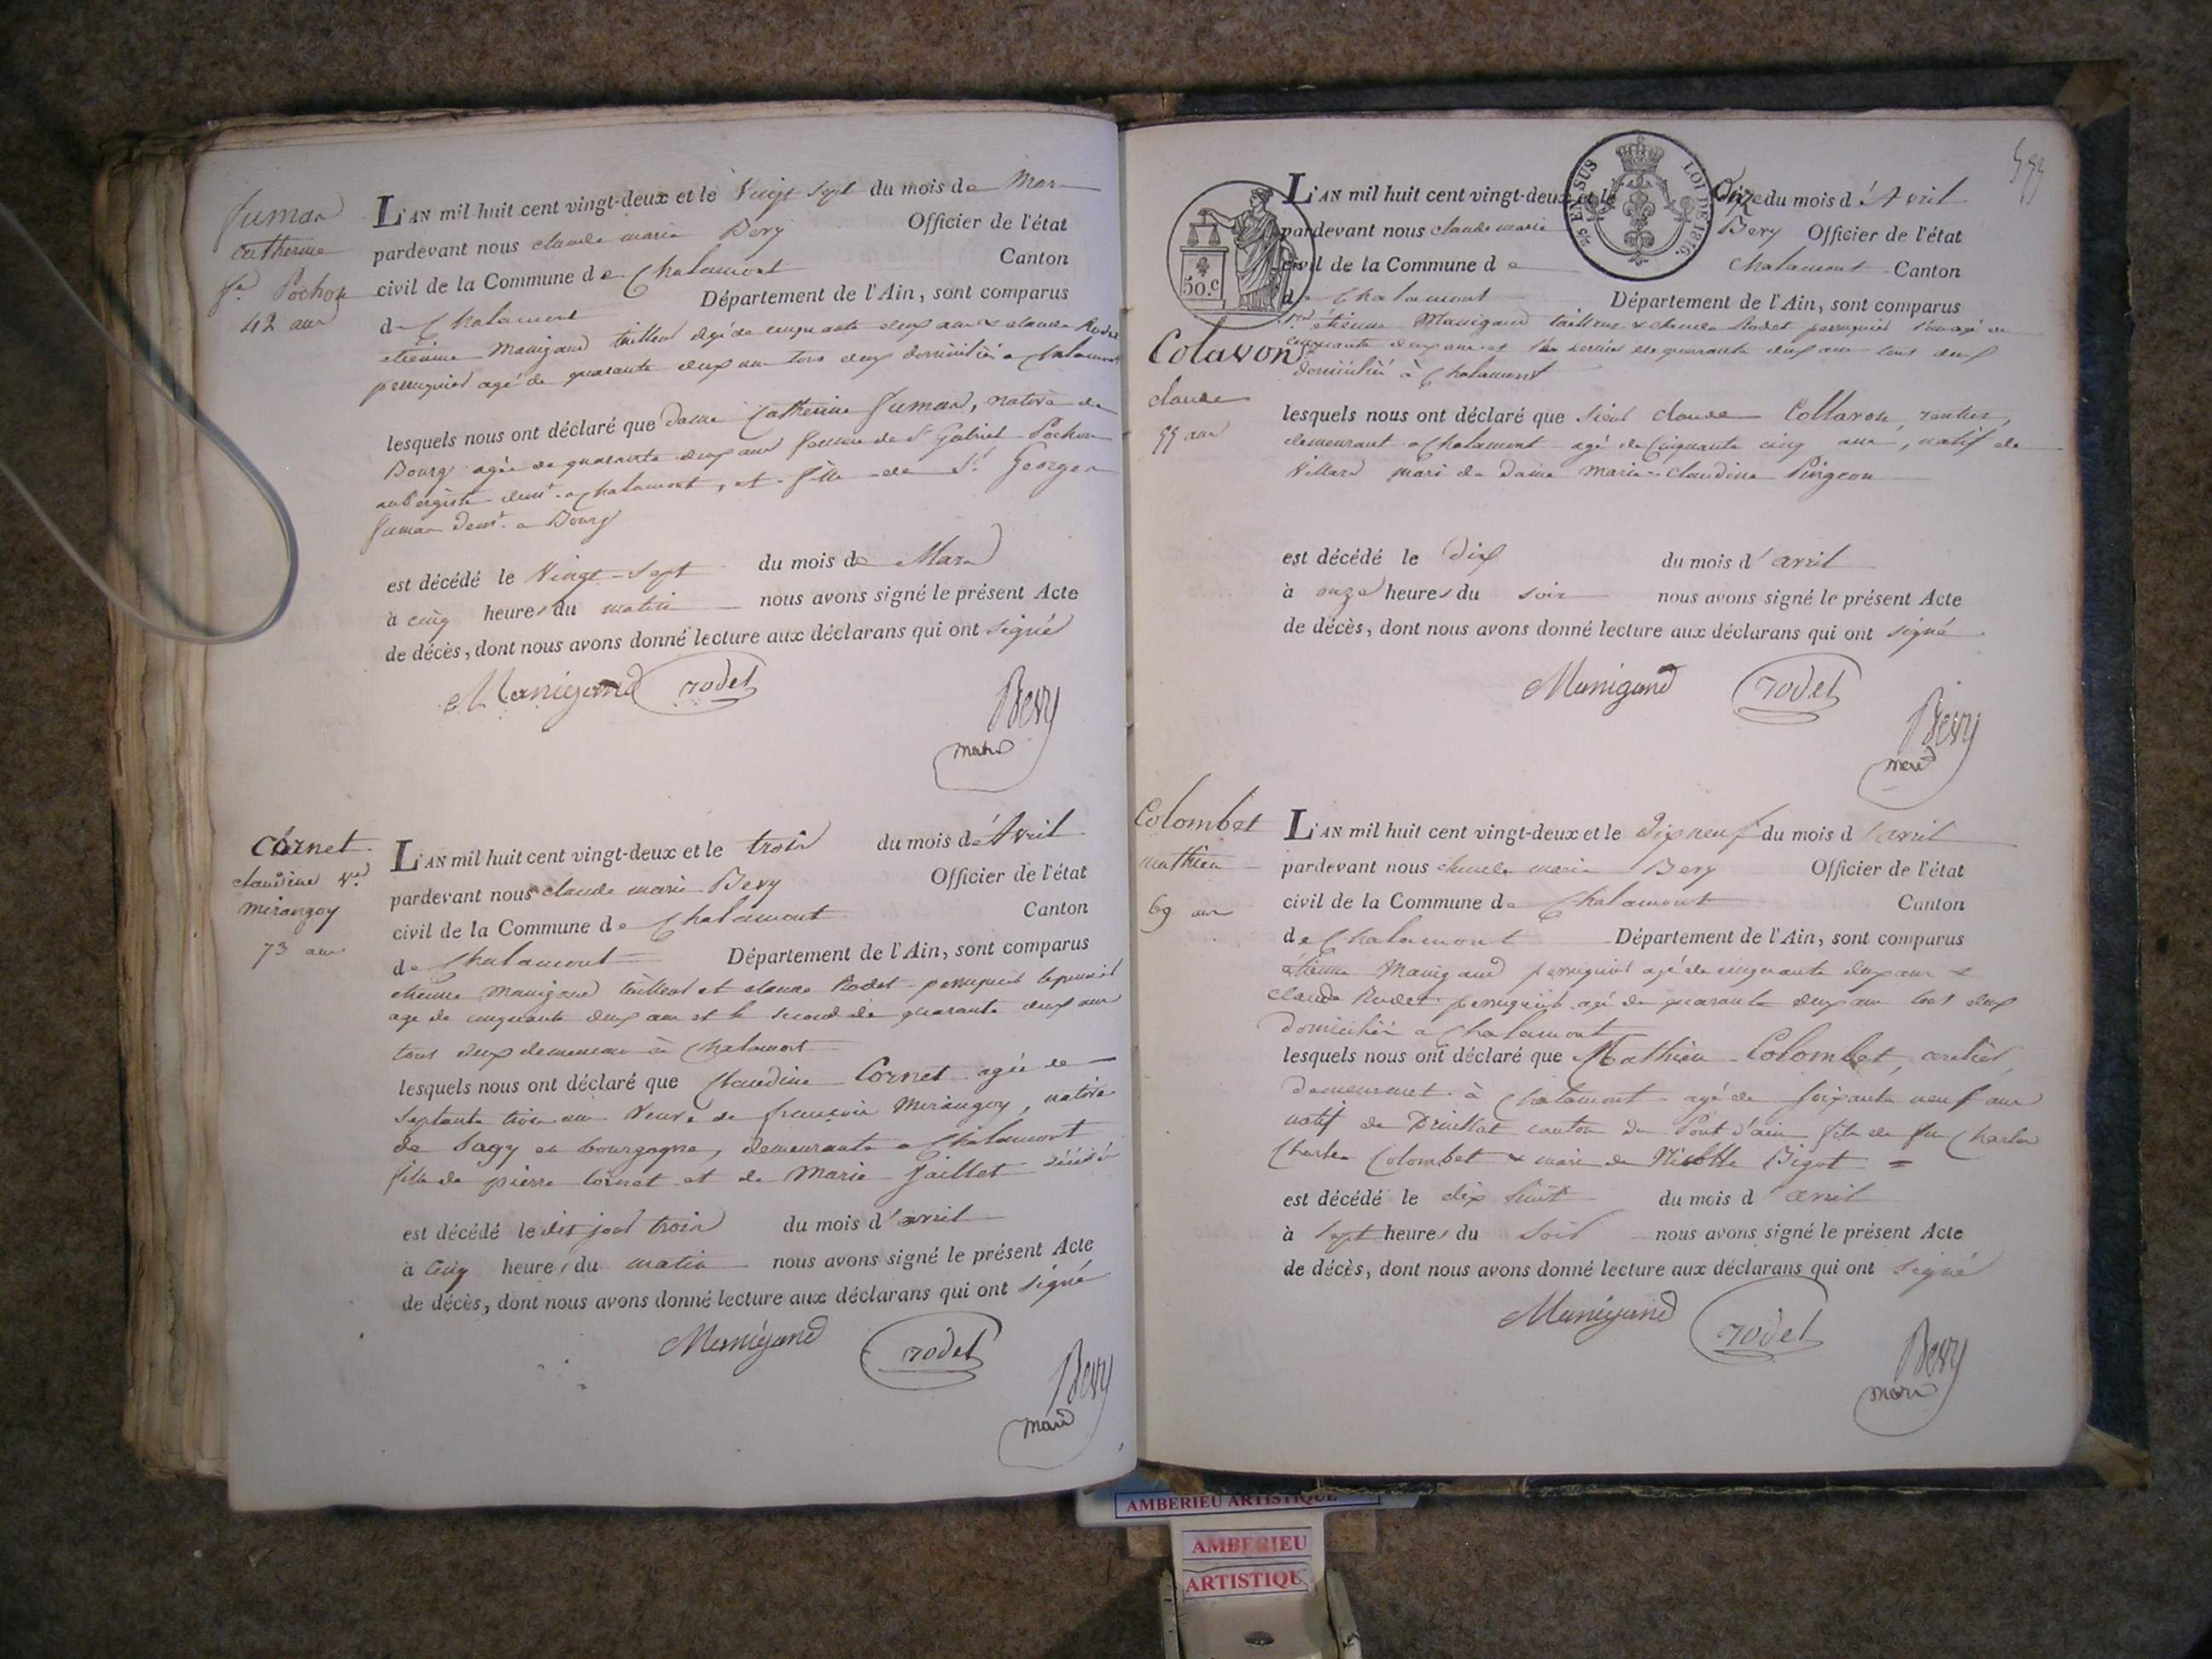 Jumar
Catherine
fe. Pochon
42 ans
L'AN mil huit cent vingt-deux et le Vingt Sept du mois de Mars
pardevant nous claude marie Bevy Officier de l'état
civil de la Commune de Chalamont Canton
de Chalamont Département de l'Ain, sont comparus
etienne Manigand tailleur agé de cinquante deux ans & claude Rodet
perruquier agé de quarante deux ans tous deux domiciliés a Chalamont
lesquels nous ont déclaré que dame Catherine Jumar, native de
Bourg agée de quarante deux ans femme de Sr Gabriel Pochon
aubergiste demt. a Chalamont, et fille de Sr. George
Jumar demt. a Bourg
est décédé le Vingt-Sept du mois de Mars
à cinq heures du matin nous avons signé le présent Acte
de décès, dont nous avons donné lecture aux déclarans qui ont signé
Manigand rodet
Bevy
maire
Cornet
claudine Ve.
mirangoy
73 ans
L'AN mil huit cent vingt-deux et le trois du mois d'Avril
pardevant nous claude marie Bevy Officier de l'état
civil de la Commune de Chalamont Canton
de Chalamont Département de l'Ain, sont comparus
etienne Manigand tailleur et claude Rodet perruquier le premier
age de cinquante deux ans et le second de quarante deux ans
tous deux demeurans à Chalamont
lesquels nous ont déclaré que Claudine Cornet agée de
septante trois ans Veuve de françois Mirangoy, native
de Sagy en bourgogne, demeurante a Chalamont
fille de pierre Cornet et de Marie Jaillet
est décédé le dit jour trois du mois d'avril
à Cinq heures du matin nous avons signé le présent Acte
de décès, dont nous avons donné lecture aux déclarans qui ont signé
Manigand rodet
Bevy
maire
50.c
25 EN SUS LOI DE 1816.
Colavon
claude
55 ans
L'AN mil huit cent vingt-deux et le Onze du mois d'Avril
pardevant nous claude marie Bevy Officier de l'état
civil de la Commune de Chalamont Canton
de Chalamont Département de l'Ain, sont comparus
etienne Manigand tailleur & claude Rodet perruquier agé de
cinquante deux ans et quarante deux ans tous deux
domiciliés à Chalamont
lesquels nous ont déclaré que Sieur claude Collavon, rentier,
demeurant a Chalamont agé de Cinquante cinq ans, natif de
Villars mari de Dame Marie-Claudine Pingeon
est décédé le dix du mois d'avril
à onze heures du soir nous avons signé le présent Acte
de décès, dont nous avons donné lecture aux déclarans qui ont signé
Manigand rodet
Bevy
maire
Colombet
mathieu
69 ans
L'AN mil huit cent vingt-deux et le dix neuf du mois d'avril
pardevant nous claude marie Bevy Officier de l'état
civil de la Commune de Chalamont Canton
de Chalamont Département de l'Ain, sont comparus
étienne Manigand perruquier agé de cinquante deux ans &
claude Rodet perruquier agé de quarante deux ans tous deux
domiciliés a Chalamont
lesquels nous ont déclaré que Mathieu Colombet,
demeurant à Chalamont agé de soixante neuf ans
natif de Druillat canton du Pont d'ain fils de feu Charles
Charles Colombet & mari de Bigot =
est décédé le dix huit du mois d'avril
à sept heures du soir nous avons signé le présent Acte
de décès, dont nous avons donné lecture aux déclarans qui ont signé
Manigand rodet
Bevy
maire
AMBERIEU ARTISTIQUE
AMBERIEU
ARTISTIQU